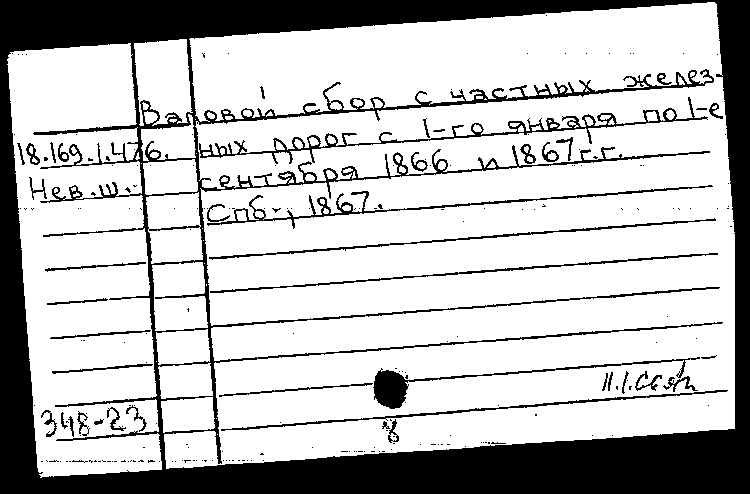 Валовой сбор с частных желез-
18.169.1.476. ных дорог с 1-го января по 1-е
Нев.ш. сентября 1866 и 1867 г.г.
Спб., 1867.
348-23
8